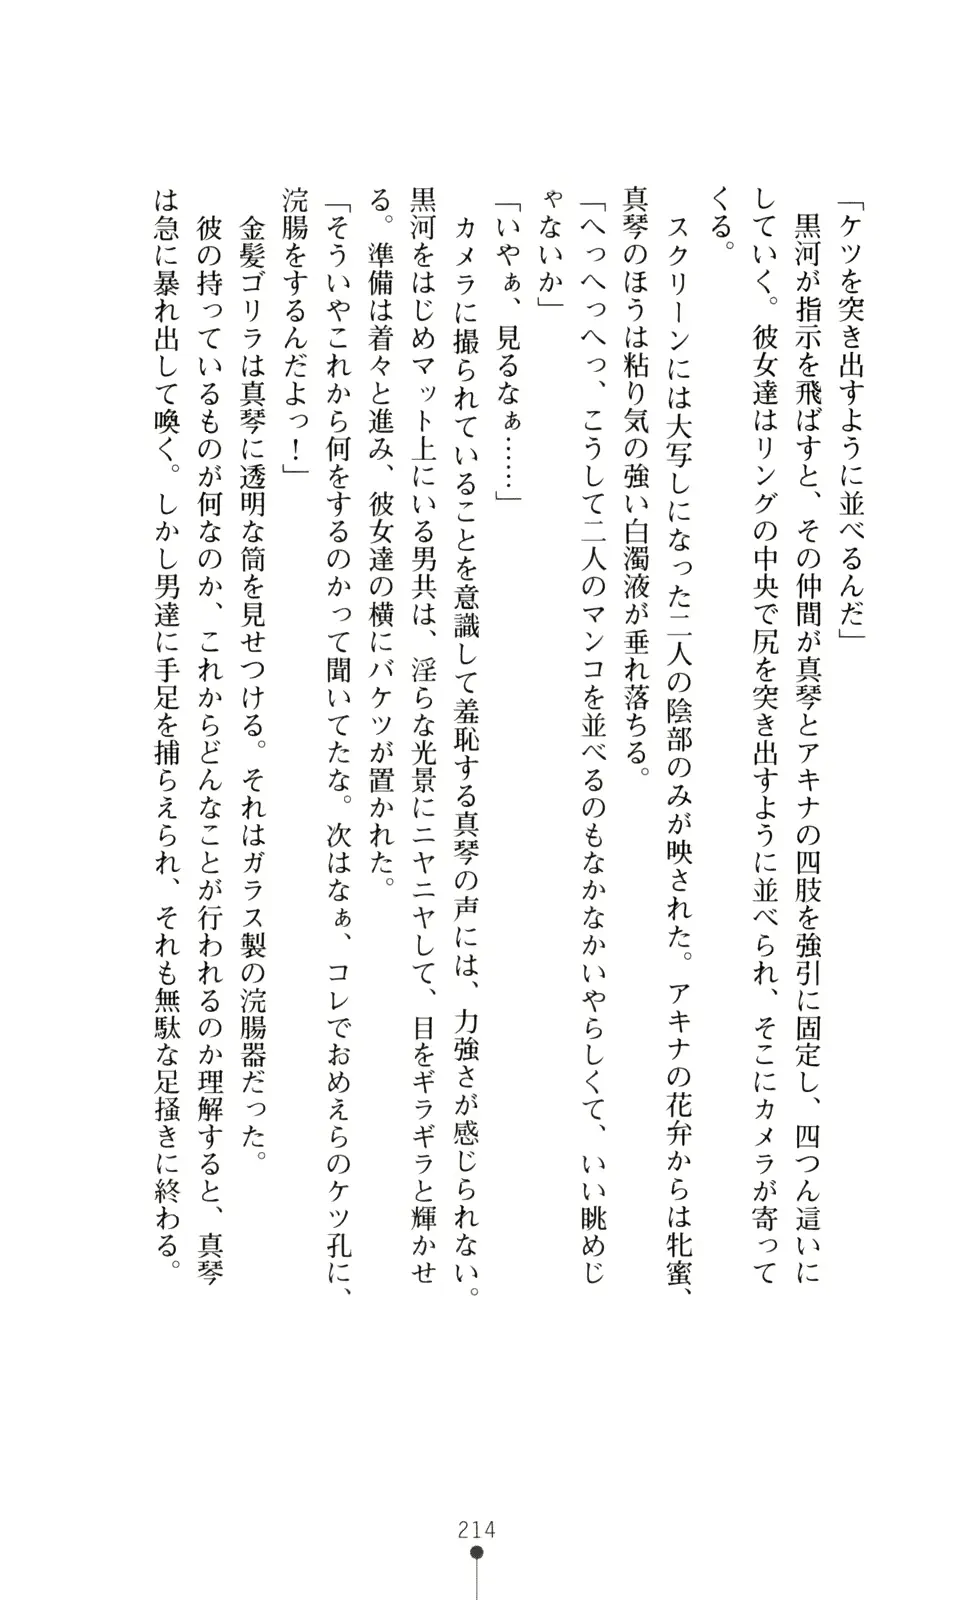 「ケツを突き出すように並べるんだ」
　黒河が指示を飛ばすと、その仲間が真琴とアキナの四肢を強引に固定し、四つん這いに
していく。彼女達はリングの中央で尻を突き出すように並べられ、そこにカメラが寄って
くる。
　スクリーンには大写しになった二人の陰部のみが映された。アキナの花弁からは牝蜜、
真琴のほうは粘り気の強い白濁液が垂れ落ちる。
「へっへっへっ、こうして二人のマンコを並べるのもなかなかいやらしくて、いい眺めじ
ゃないか」
「いやぁ、見るなぁ……」
　カメラに撮られていることを意識して羞恥する真琴の声には、力強さが感じられない。
黒河をはじめマット上にいる男共は、淫らな光景にニヤニヤして、目をギラギラと輝かせ
る。準備は着々と進み、彼女達の横にバケツが置かれた。
「そういやこれから何をするのかって聞いてたな。次はなぁ、コレでおめえらのケツ孔に、
浣腸をするんだよっ！」
　金髪ゴリラは真琴に透明な筒を見せつける。それはガラス製の浣腸器だった。
　彼の持っているものが何なのか、これからどんなことが行われるのか理解すると、真琴
は急に暴れ出して喚く。しかし男達に手足を捕らえられ、それも無駄な足掻きに終わる。
214